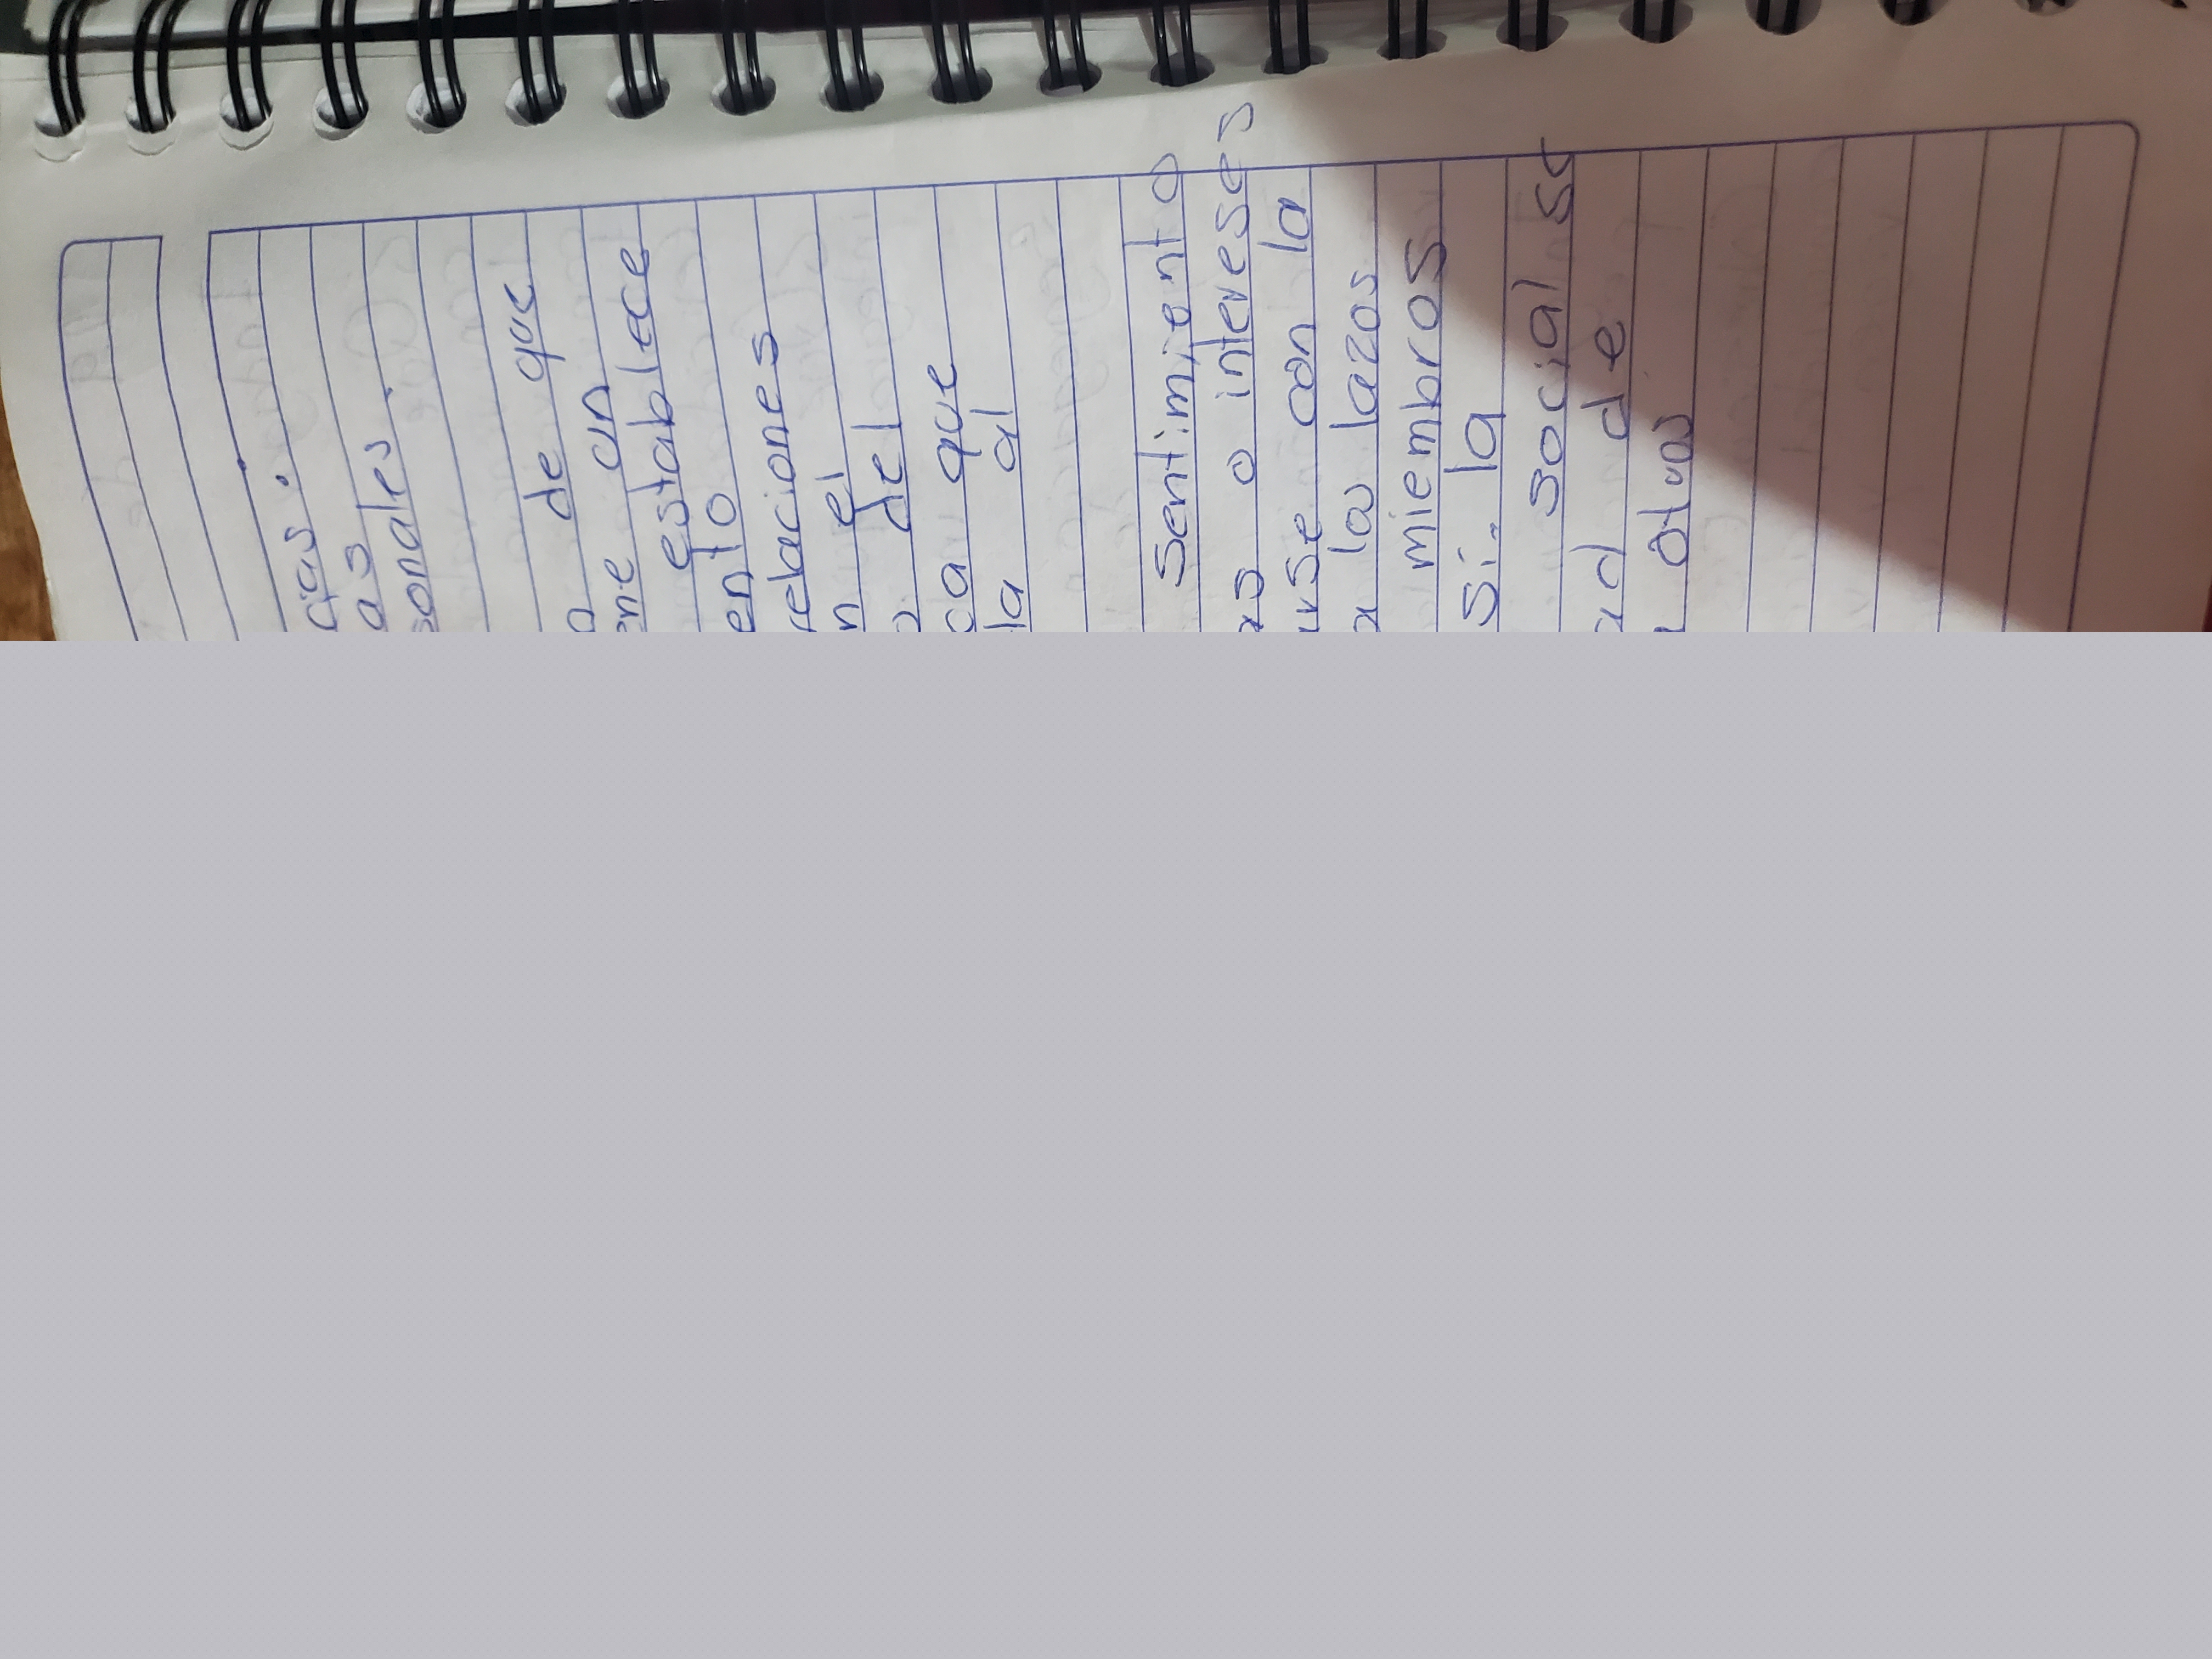 as
sonales.
de que
un
establece
ento
relaciones
n el
del
ca que
la al
Sentimiento
as o intereses
arse con la
a los lazos
miembros
si. la
social se
ad de